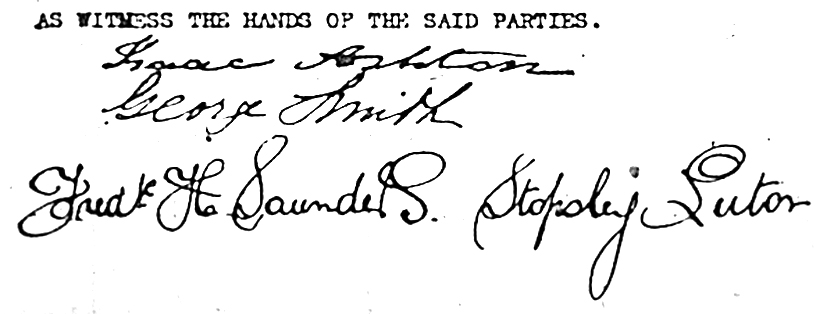 AS WITNESS THE HANDS OF THE SAID PARTIES.
Isaac Ashton
George Smith
Fredk H. Saunders. Stopsley Luton